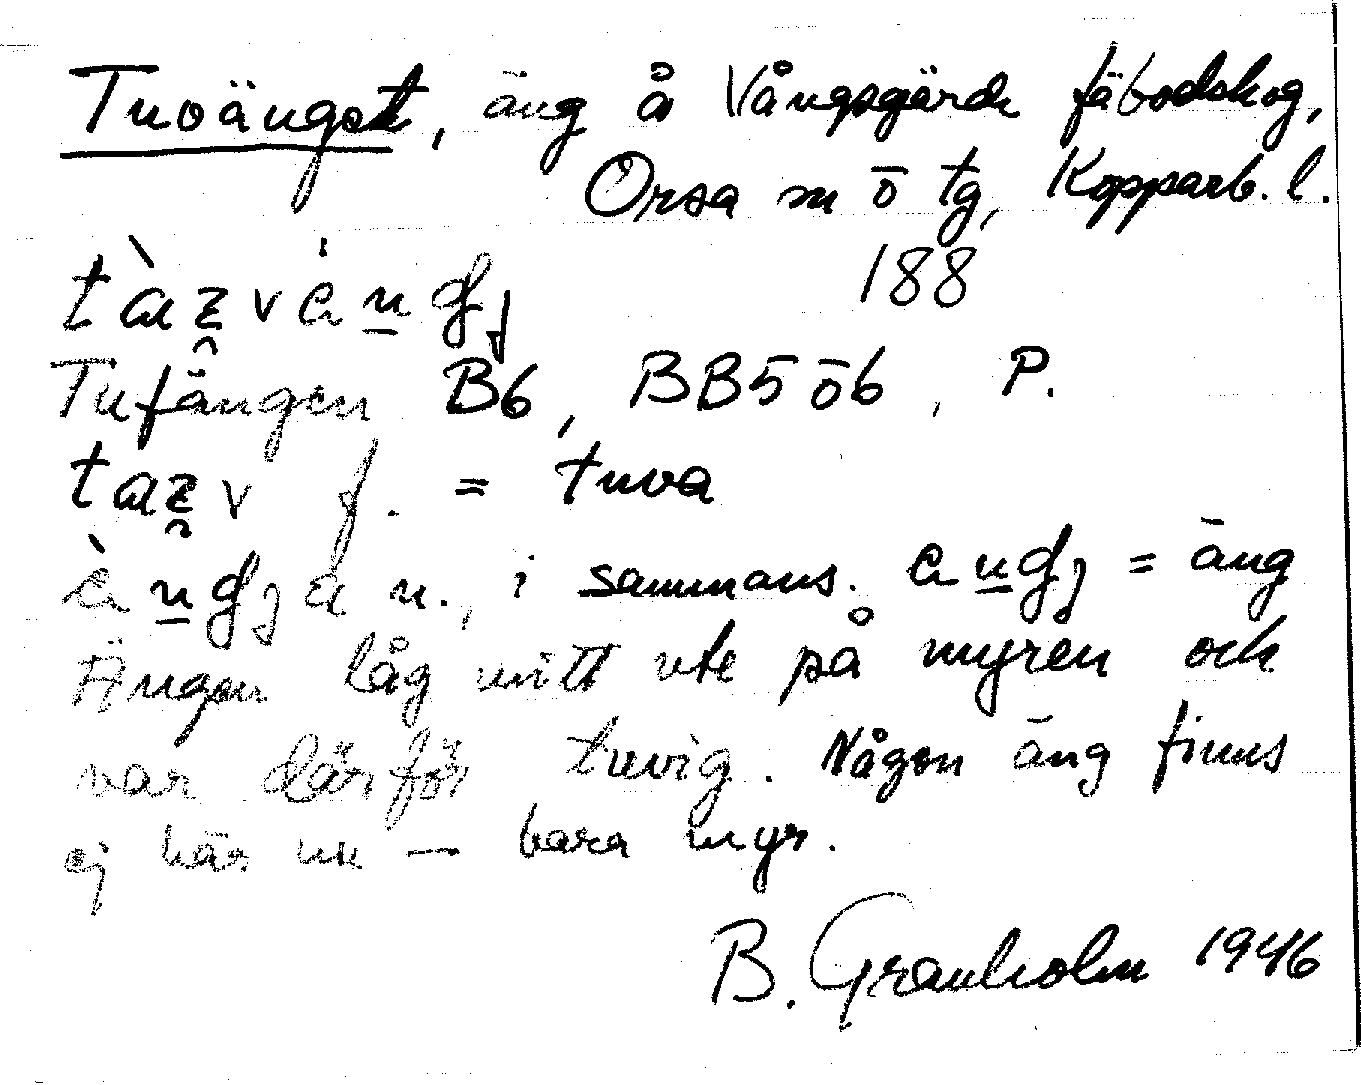 Tuvänget, äng å Vångsgärde fäbodskog,
Orsa sn ō tg, Kopparb. l.
188
Tufängen B6, BB5 ō6, P.
f. = tuva
n., i sammans. = äng
Ängen låg mitt ute på myren och
var därför tuvig. Någon äng finns
ej här nu — bara myr.
B. Granholm 1946